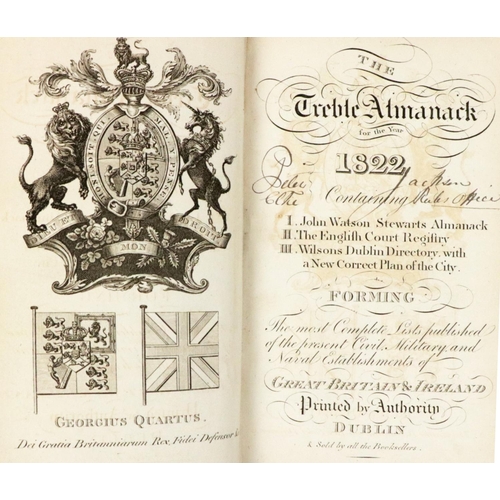 HONI SOIT QUI MAL Y PENSE
DIEU ET MON DROIT
GEORGIUS QUARTUS.
Dei Gratia Britanniarum Rex, Fidei Defensor &c
THE
Treble Almanack
for the Year
1822
Jackson
Containing Rules Office
I. John Watson Stewarts Almanack
II. The Engliſh Court Regiſtry
III. Wilsons Dublin Directory, with
a New Correct Plan of the City.
FORMING
The most Complete Lists published
of the present Civil, Military and
Naval Establishments of
GREAT BRITAIN & IRELAND
Printed by Authority
DUBLIN
& Sold by all the Booksellers.